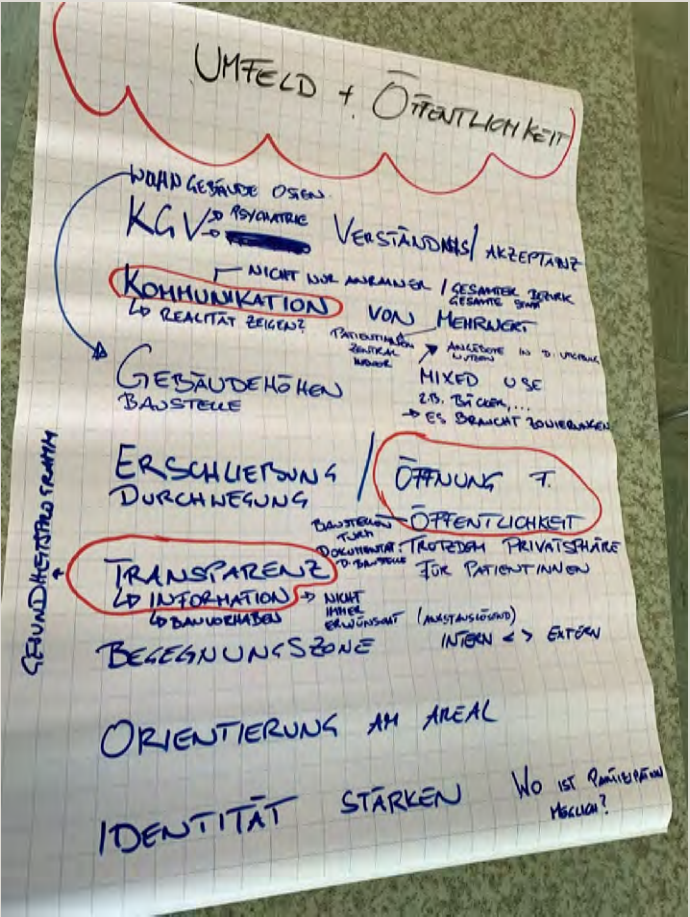 UMFELD + ÖFFENTLICHKEIT
WOHNGEBÄUDE OSTEN.
KGV → PSYCHIATRIE
VERSTÄNDNIS / AKZEPTANZ
NICHT NUR ANRAINER / GESAMTER BEZIRK
GESAMTE STADT
KOMMUNIKATION VON MEHRWERT
↳ REALITÄT ZEIGEN?
PATIENTINNEN
ZENTRAL
ANGEBOTE IN D. UMGEBUNG
NUTZEN
GEBÄUDEHÖHEN
BAUSTELLE
MIXED USE
Z.B. BÄCKER,...
→ ES BRAUCHT ZONIERUNGEN
ERSCHLIEßUNG /
DURCHWEGUNG
ÖFFNUNG F.
ÖFFENTLICHKEIT
BAUSTELLEN
TURM
DOKUMENTAT.
D. BAUSTELLE
TROTZDEM PRIVATSPHÄRE
FÜR PATIENTINNEN
GESUNDHEITSPROGRAMM
TRANSPARENZ
↳ INFORMATION → NICHT
IMMER
ERWÜNSCHT (ANGSTAUSLÖSEND)
↳ BAUVORHABEN
INTERN <> EXTERN
BEGEGNUNGSZONE
ORIENTIERUNG AM AREAL
IDENTITÄT STÄRKEN
WO IST PARTIZIPATION
MÖGLICH?